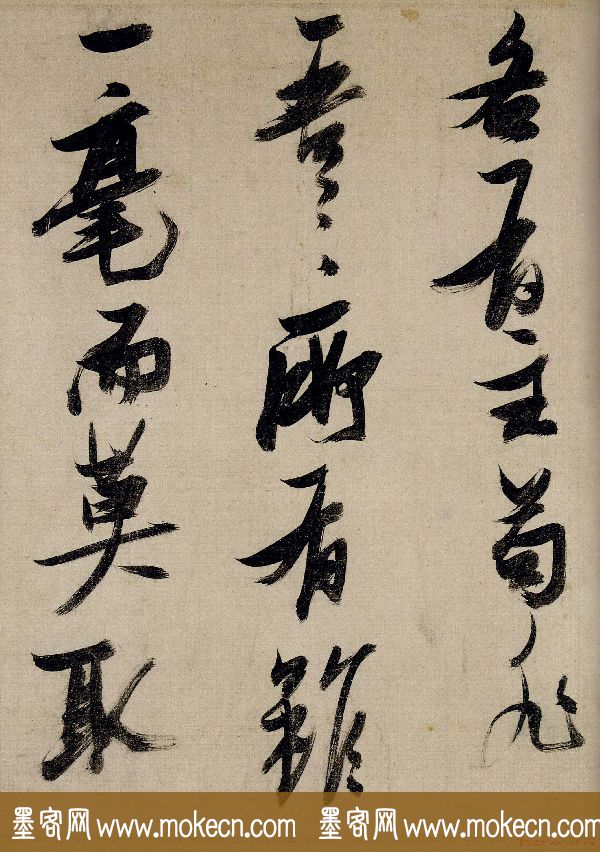 各有主苟非
吾之所有雖
一毫而莫取
墨客网 www.mokecn.com 墨客网 www.mokecn.com